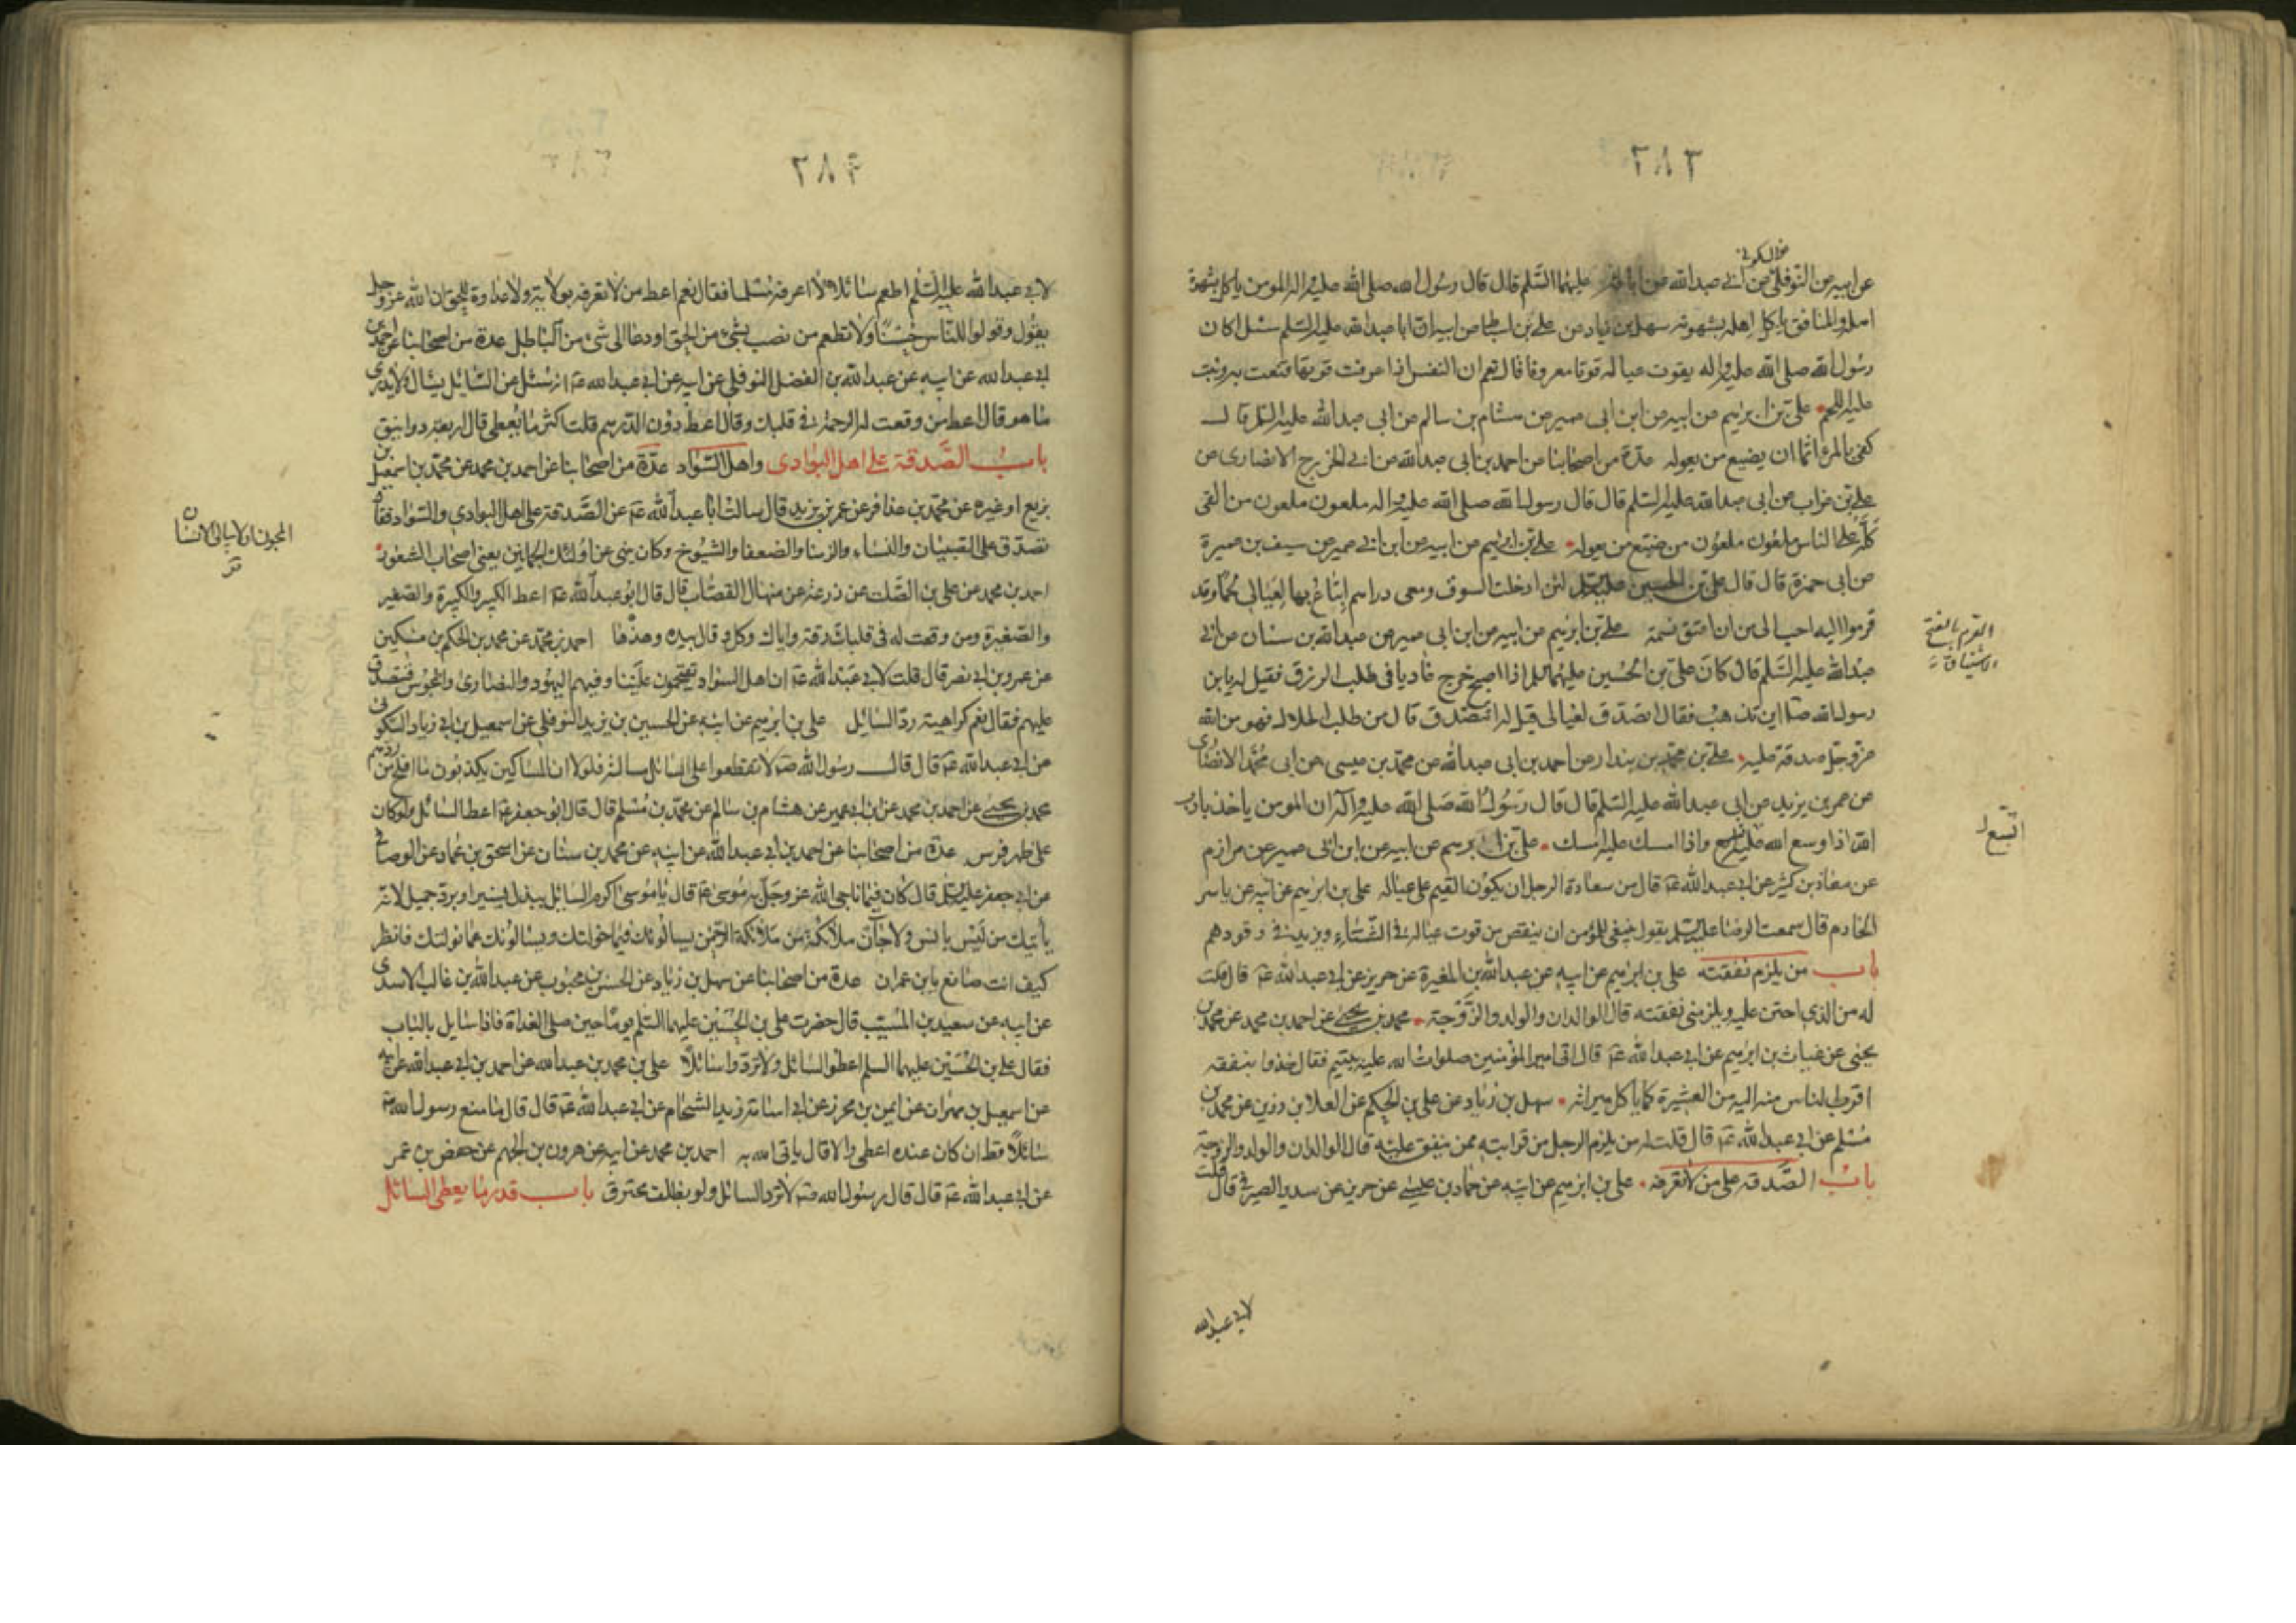 ٢٨٣
عن السكوني
عن ابيه عن النوفلي عن ابي عبد الله عن ابائه عليهما السلم قال قال رسول الله صلى الله عليه واله المومن ياكل بشهوة
اهله والمنافق ياكل اهله بشهوته سهل بن زياد عن علي بن اسباط عن ابيه ان ابا عبد الله عليه السلم سئل اكان
رسول الله صلى الله عليه واله يقوت عياله قوتا معروفا قال نعم ان النفس اذا عرفت قوتها قنعت به ونبت
عليه اللحم علي بن ابرهيم عن ابيه عن ابن ابي عمير عن هشام بن سالم عن ابي عبد الله عليه السلم قال
كفى بالمرء اثما ان يضيع من يعوله عدة من اصحابنا عن احمد بن ابي عبد الله عن ابي الخزرج الانصارى عن
علي بن غراب عن ابي عبد الله عليه السلم قال قال رسول الله صلى الله عليه واله ملعون ملعون من القى
كله على الناس ملعون ملعون من ضيع من يعوله علي بن ابرهيم عن ابيه عن ابن ابي عمير عن سيف بن عميرة
عن ابي حمزة قال قال علي بن الحسين عليهما السلم لئن ادخلت السوق ومعى دراهم ابتاع بها لعيالى لحما وقد
قرموا اليه احب الى من ان اعتق نسمة علي بن ابرهيم عن ابيه عن ابن ابي عمير عن عبد الله بن سنان عن ابي
عبد الله عليه السلم قال كان علي بن الحسين عليهما السلم اذا اصبح خرج غاديا فى طلب الرزق فقيل له يا بن
رسول الله اين تذهب فقال اتصدق لعيالى قيل له اتتصدق قال من طلب الحلال فهو من الله
عز وجل صدقة عليه علي بن محمد بن بندار عن احمد بن ابي عبد الله عن محمد بن عيسى عن ابي محمد الانصارى
عن عمر بن يزيد عن ابي عبد الله عليه السلم قال قال رسول الله صلى الله عليه واله ان المومن ياخذ بادب
الله اذا وسع الله عليه اتسع واذا امسك عليه امسك علي بن ابرهيم عن ابيه عن ابن ابي عمير عن مرازم
عن معاذ بن كثير عن ابي عبد الله عه قال من سعادة الرجل ان يكون القيم على عياله علي بن ابرهيم عن ابيه عن ياسر
الخادم قال سمعت الرضا عليه السلم يقول ينبغى للمؤمن ان ينقص من قوت عياله فى الشتاء ويزيد فى وقودهم
باب من يلزم نفقته علي بن ابرهيم عن ابيه عن عبد الله بن المغيرة عن حريز عن ابي عبد الله عه قال قلت
له من الذى احتن عليه ويلزمنى نفقته قال الوالدان والولد والزوجة محمد بن يحيى عن احمد بن محمد عن محمد بن
يحيى عن غياث بن ابرهيم عن ابي عبد الله عه قال اتى امير المؤمنين صلوات الله عليه بيتيم فقال خذوا بنفقته
اقرب الناس منه اليه من العشيرة كما ياكل ميراثه سهل بن زياد عن علي بن الحكم عن العلا بن رزين عن محمد بن
مسلم عن ابي عبد الله عه قال قلت له من يلزم الرجل من قرابته ممن ينفق عليه قال الوالدان والولد والزوجة
باب الصدقة على من لا تعرفه علي بن ابرهيم عن ابيه عن حماد بن عيسى عن حريز عن سدير الصيرفى قال قلت
القرم بالفتح
الاشتياق
اتسع
لابي عبد الله
٢٨٤
لابي عبد الله عليه السلم اطعم سائلا لا اعرفه مسلما فقال نعم اعط من لا تعرفه بولاية ولا عداوة للحق ان الله عز وجل
يقول وقولوا للناس حسنا ولا تطعم من نصب بشىء من الحق او دعا الى شى من الباطل عدة من اصحابنا عن احمد بن
ابي عبد الله عن ابيه عن عبد الله بن الفضل النوفلى عن ابيه عن ابي عبد الله عه انه سئل عن السائل يسال ولا يدرى
ما هو قال اعط من وقعت له الرحمة فى قلبك وقال اعط دون الدرهم قلت اكثر ما يعطى قال اربعة دوانيق
باب الصدقة على اهل البوادى واهل السواد عدة من اصحابنا عن احمد بن محمد عن محمد بن اسمعيل بن
بزيع او غيره عن محمد بن عذافر عن عمر بن يزيد قال سالت ابا عبد الله عه عن الصدقة على اهل البوادى والسواد فقال
تصدق على الصبيان والنساء والزمنا والضعفا والشيوخ وكان ينهى عن اولئك الجمانين يعنى اصحاب الشعور
احمد بن محمد عن على بن الصلت عن زرعة عن منهال القصاب قال قال ابو عبد الله عه اعط الكبير والكبيرة والصغير
والصغيرة ومن وقعت له فى قلبك رقة واياك وكل وقال بيده وهزها احمد بن محمد عن محمد بن الحكم بن مسكين
عن عمرو بن ابي نصر قال قلت لابي عبد الله عه ان اهل السواد يقتحمون علينا وفيهم اليهود والنصارى والمجوس فنتصدق
عليهم فقال نعم كراهية رد السائل على بن ابرهيم عن ابيه عن الحسين بن يزيد النوفلى عن اسمعيل بن ابي زياد السكونى
عن ابي عبد الله عه قال قال رسول الله صه لا تقطعوا على السائل مسالته فلولا ان المساكين يكذبون ما افلح من ردهم
محمد بن يحيى عن احمد بن محمد عن ابن ابي عمير عن هشام بن سالم عن محمد بن مسلم قال قال ابو جعفر عه اعط السائل ولو كان
على ظهر فرس عدة من اصحابنا عن احمد بن ابي عبد الله عن ابيه عن محمد بن سنان عن اسحق بن عمار عن الوصافى
عن ابي جعفر عليه السلم قال كان فيما ناجى الله عز وجل به موسى عه قال يا موسى اكرم السائل ببذل يسير او برد جميل لانه
ياتيك من ليس بانس ولا جان ملائكة من ملائكة الرحمن يسالونك فيما خولتك ويسالونك مما نولتك فانظر
كيف انت صانع يا بن عمران عدة من اصحابنا عن سهل بن زياد عن الحسن بن محبوب عن عبد الله بن غالب الاسدى
عن ابيه عن سعيد بن المسيب قال حضرت على بن الحسين عليهما السلم يوما حين صلى الغداة فاذا سايل بالباب
فقال على بن الحسين عليهما السلم اعطوا السائل ولا تردوا سائلا على بن محمد بن عبد الله عن احمد بن ابي عبد الله عن ابيه
عن اسمعيل بن مهران عن ايمن بن محرز عن ابي اسامة زيد الشحام عن ابي عبد الله عه قال قال ما منع رسول الله صه
سائلا قط ان كان عنده اعطى والا قال ياتى الله به احمد بن محمد عن ابيه عن هرون بن الجهم عن حفص بن عمر
عن ابي عبد الله عه قال قال رسول الله صه لا ترد السائل ولو بظلف محترق باب قدر ما يعطى السائل
المجون ان لا يبالى الانسان